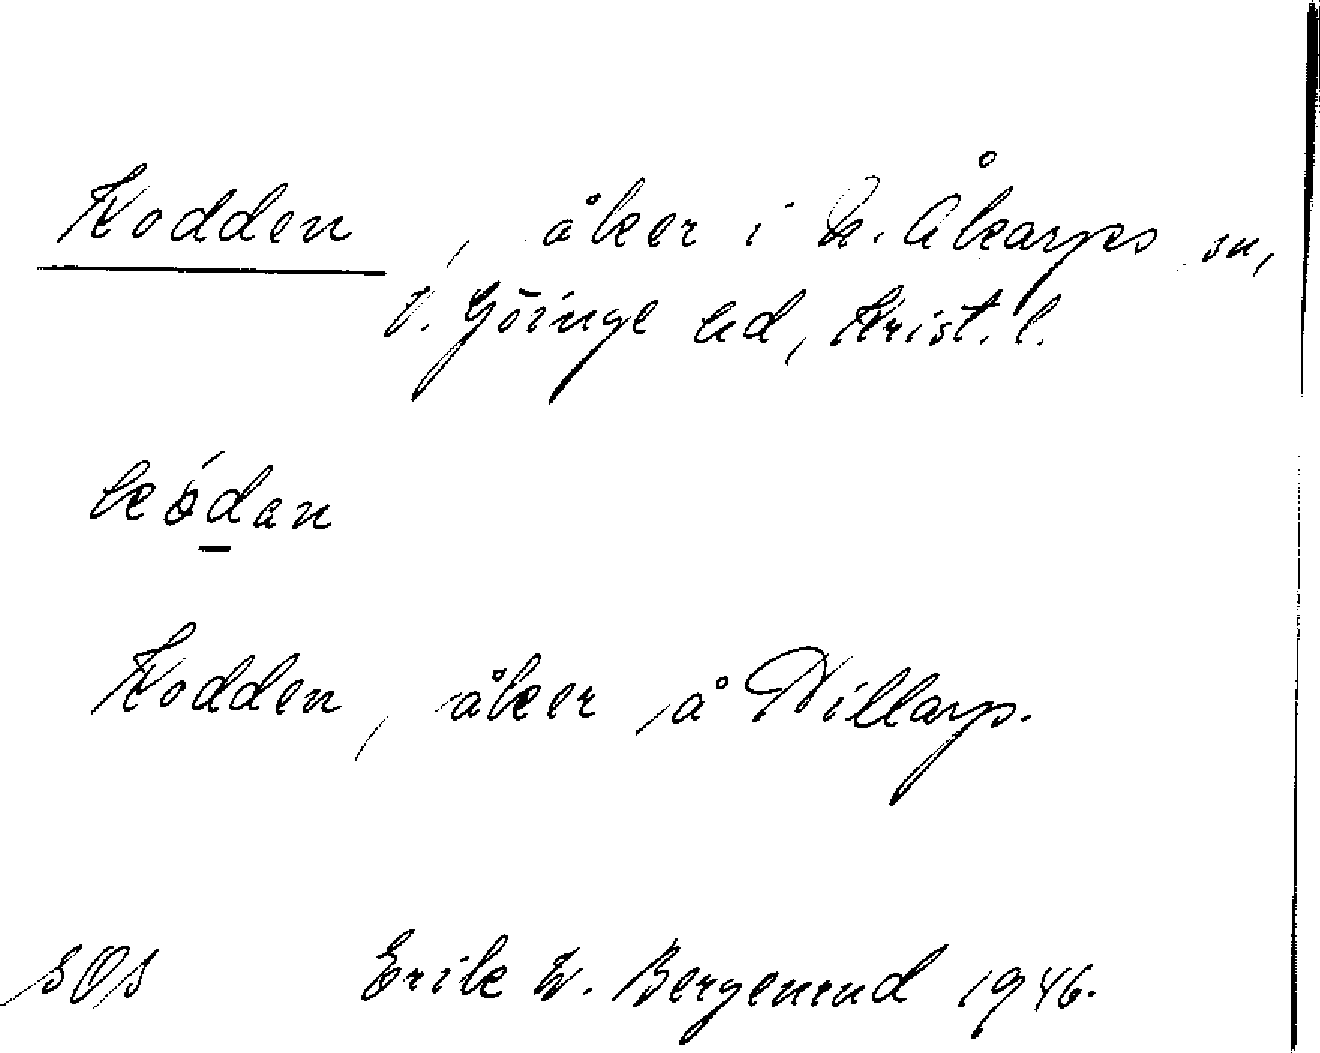 Kodden, åker i N. Åkarps sn,
V. Göinge hd, Krist. l.
kódan
Kodden, åker å Willarp.
SOS Erik W. Bergenrud 1946.